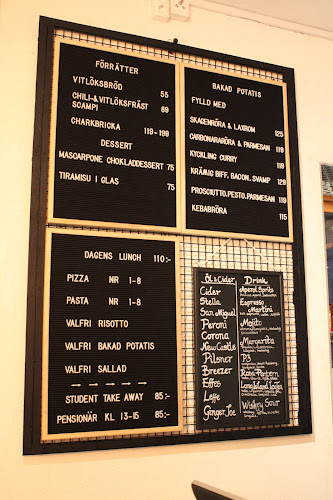 FÖRRÄTTER
VITLÖKSBRÖD 55
CHILI-&VITLÖKSFRÄST
SCAMPI 89
CHARKBRICKA 119-199
DESSERT
MASCARPONE CHOKLADDESSERT 75
TIRAMISU I GLAS 75
BAKAD POTATIS
FYLLD MED
SKAGENRÖRA & LAXROM 125
CARBONARARÖRA & PARMESAN 119
KYCKLING CURRY 119
KRÄMIG BIFF, BACON, SVAMP 129
PROSCIUTTO,PESTO,PARMESAN 119
KEBABRÖRA 115
DAGENS LUNCH 110:-
PIZZA NR 1-8
PASTA NR 1-8
VALFRI RISOTTO
VALFRI BAKAD POTATIS
VALFRI SALLAD
→ → → → →
STUDENT TAKE AWAY 85:-
PENSIONÄR KL 13-15 85:-
Öl & Cider
Cider
Stella
San Miguel
Peroni
Corona
New Castle
Pilsner
Breezer
Effes
Leffe
Ginger Joe
Drink
Aperol Spritz
Espresso
Martini
Mojito
Margarita
P3
Rosa Pantern
Long Island Ice Tea
Whiskey Sour